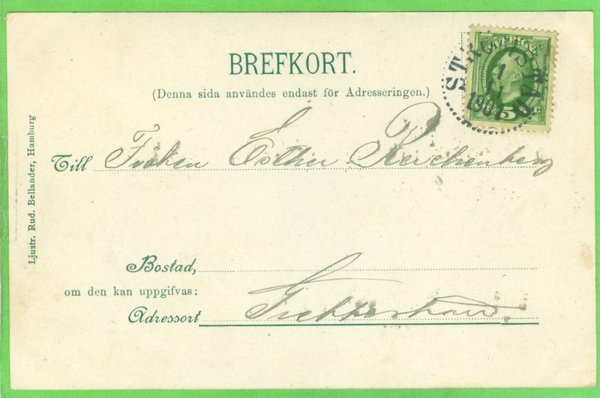 BREFKORT.
(Denna sida användes endast för Adresseringen.)
SVERIGE
5
1901
Till Fröken Esther Reichenberg
Bostad,
om den kan uppgifvas:
Adressort
Ljustr. Rud. Bellander, Hamburg